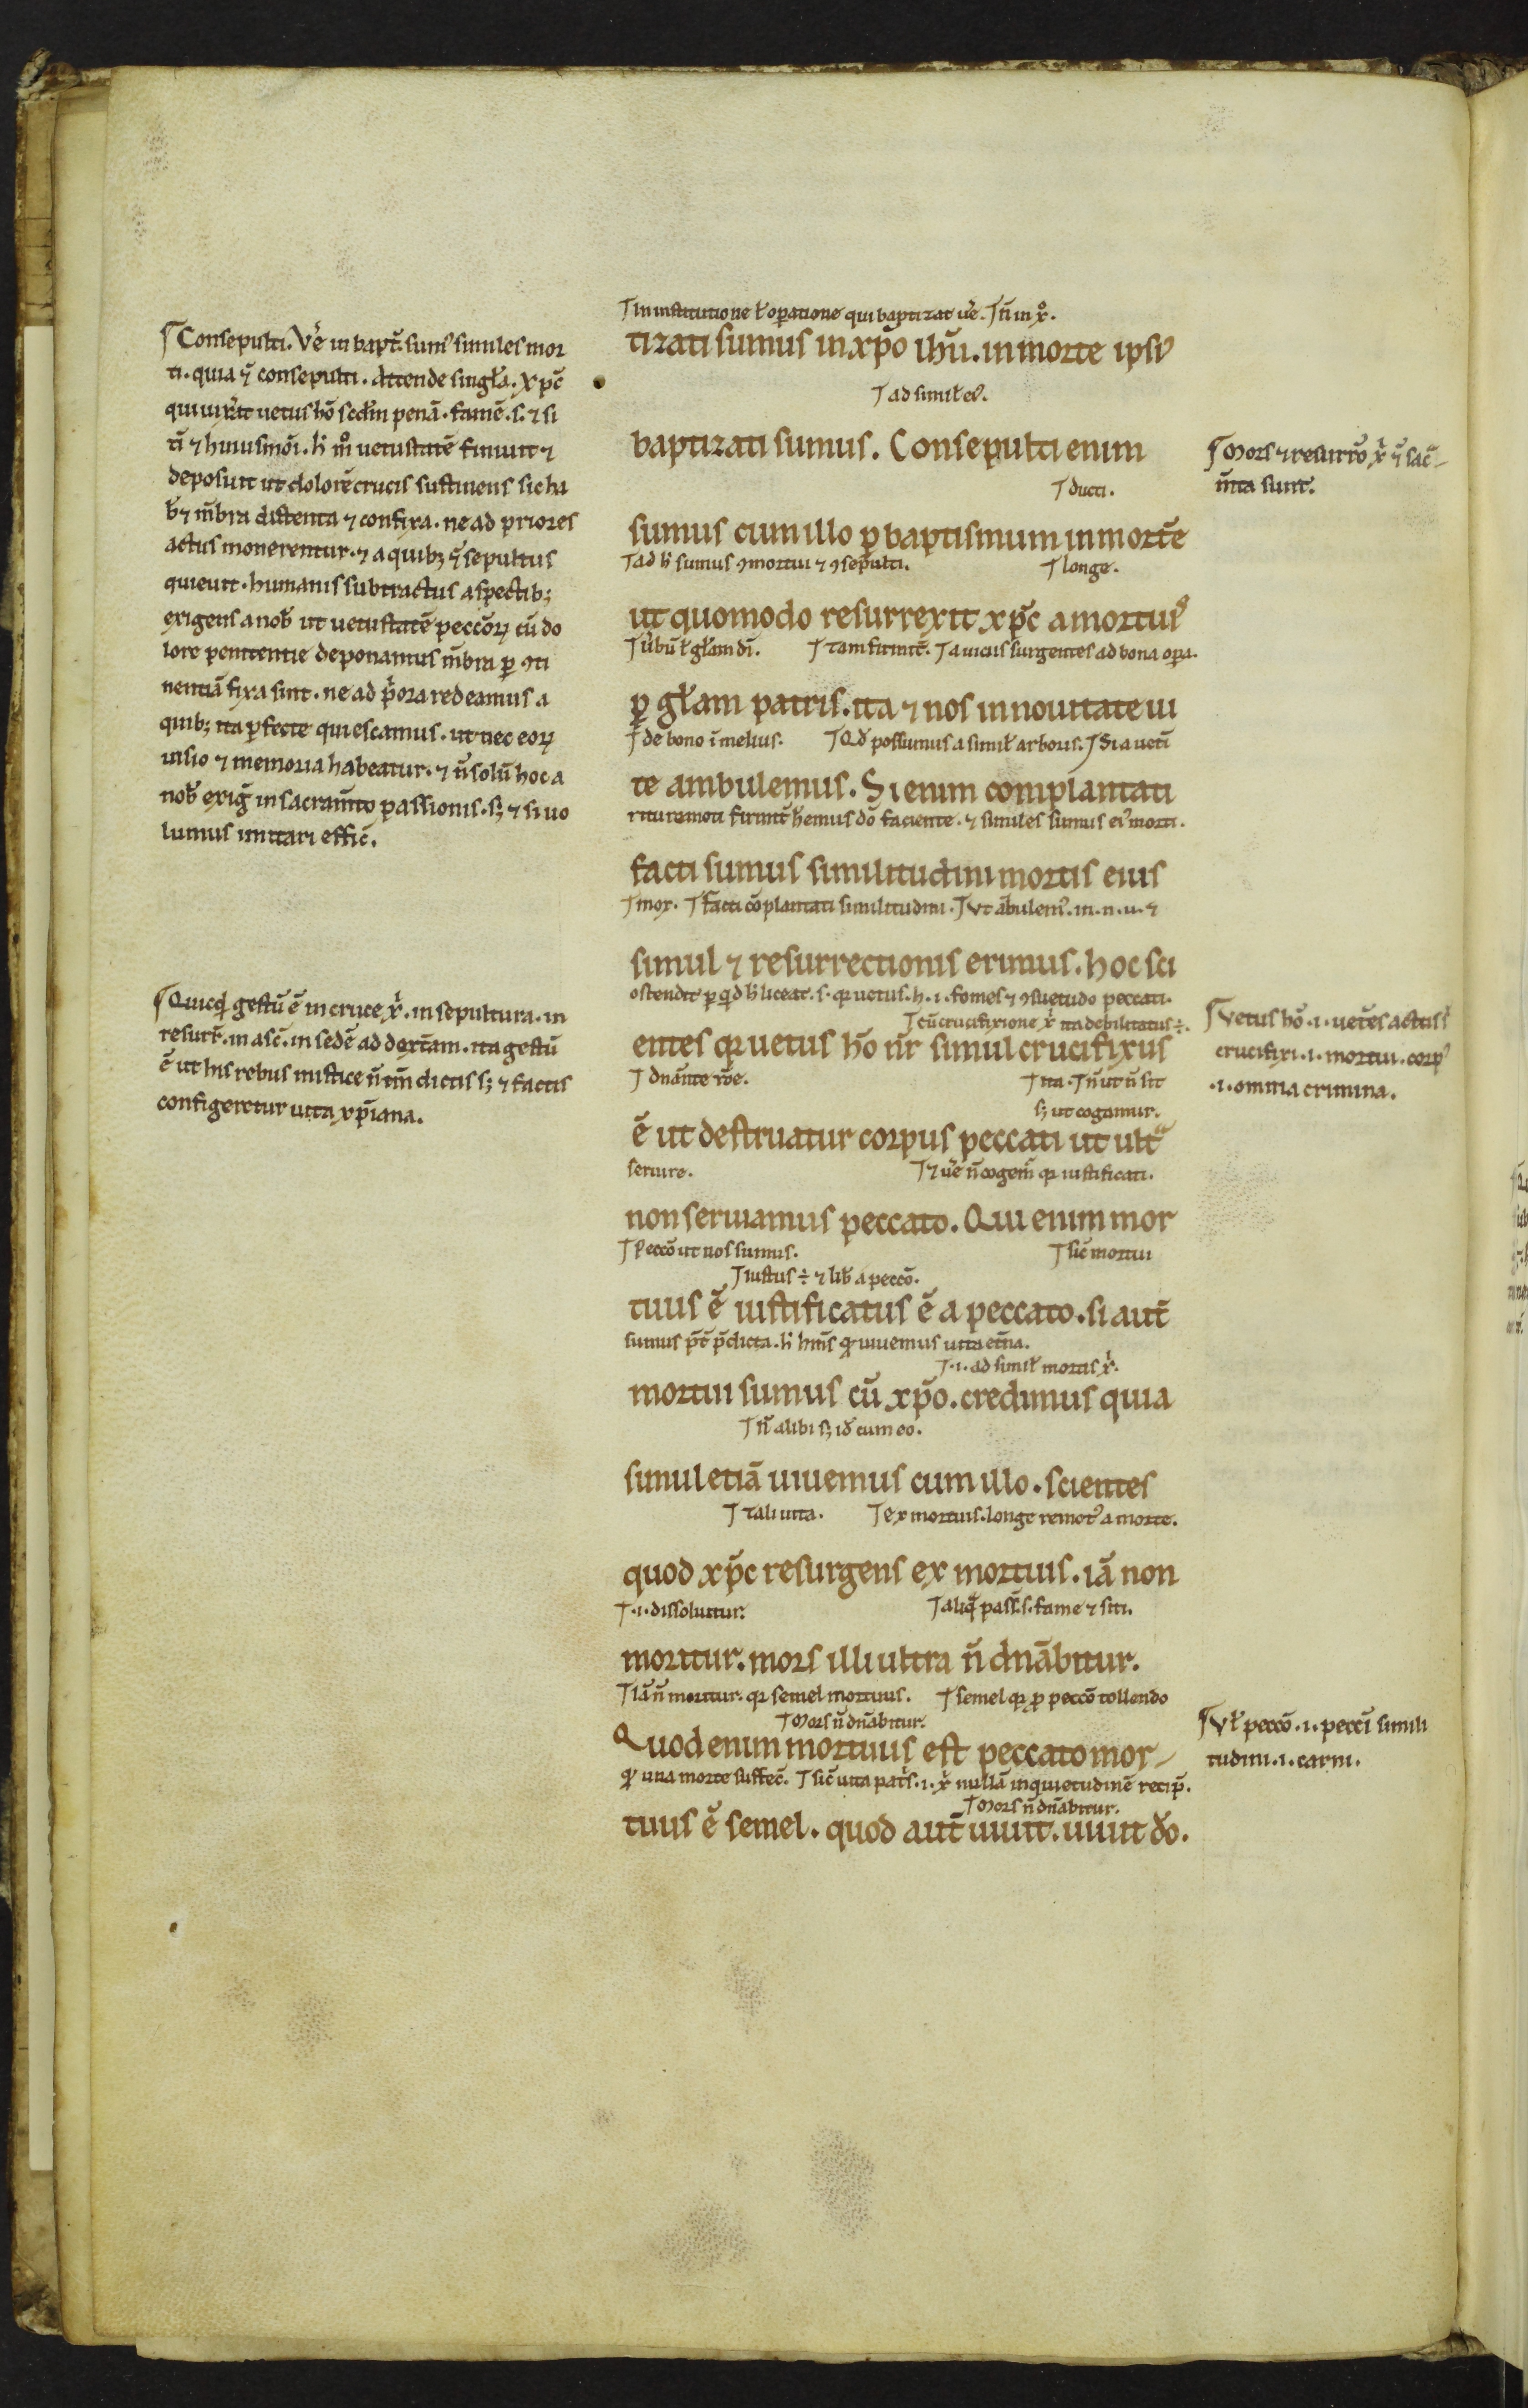 Consepulti. Ve͛ in bapt̄. sum᷒ similes mor
ti. quia ⁊̄ consepulti. Attende singła. xp̄c
qui uix̓it uetus hō scdm̄ penā. famē. s. ⁊ si
tī ⁊ huiusmōi. h̓ m̊ uetustatē finiuit ⁊
deposuit ut dolorē crucis sustinens sic ha
b̓ꝫ m̄bra distenta ⁊ confixa. ne ad priores
actus monerentur. ⁊ a quibꝫ ⁊̄ sepultus
quieuit. humanis subtractus aspectibꝫ
exigens a nob̓ ut uetustatē peccōꝝ cū do
lore penitentie deponamus m̄bra ꝑ ꝯti
nentiā fixa sint. ne ad p̓ora redeamus a
quibꝫ ita ꝑfecte quiescamus. ut nec eoꝝ
uisio ⁊ memoria habeatur. ⁊ n̄ solū hoc a
nob̓ exig̓ in sacram̄to passionis. sꝫ ⁊ si uo
lumus imitari effic̄.
Quicq̓d gestū ē in cruce x̓. in sepultura. in
resurr̄. in asc̄. in sedē ad dext̄am. ita gestū
ē ut his rebus mistice n̄ tm̄ dictis sꝫ ⁊ factis
configeretur uita xp̄iana.
In institutione ł oꝑatione qui baptizat ue͛. n̄ in x̊.
tizati sumus in xp̄o ihū. in morte ipsi᷒
ad simił ei᷒.
baptizati sumus. Consepulti enim
ducti.
sumus cum illo ꝑ baptismum in mortē
ad h̓ sumus ꝯmortui ⁊ ꝯsepulti. longe.
ut quomodo resurrexit xp̄c a mortuis
u̓bū ł głam dī. tam firmit̄. a uiciis surgentes ad bona oꝑa.
ꝑ głam patris. ita ⁊ nos in nouitate ui
de bono ī melius. Qd̓ possumus a simił arboris. Si a uetī
te ambulemus. Si enim complantati
rtu remoti firmit̄ h̓emus dō faciente. ⁊ similes sumus ei᷒ morti.
facti sumus similitudini mortis eius
mox. facti cōplantati similitudini. Vt ābulem᷒. in. n. u. ⁊
simul ⁊ resurrectionis erimus. hoc sci
ostendit ꝑ qd̓ h̓ liceat. s. qꝛ uetus. h. i. fomes ⁊ ꝯsuetudo peccati.
cū crucifixione x̓ ita debilitatus ÷.
entes qꝛ uetus hō nr̄ simul crucifixus
dnānte rōe. ita. n̄ ut n̄ sit
sꝫ ut cogamur.
ē ut destruatur corpus peccati ut ult̄ᵃ
seruire. ⁊ ue͛ n̄ cogem̄ qꝛ iustificati.
non seruiamus peccato. Qui enim mor
Peccō ut nos sumus. sic̄ mortui
iustus ÷ ⁊ lib̓ a peccō.
tuus ē iustificatus ē a peccato. si aut̄
sumus p̄t p̄dicta. h̓ hm̄s qꝛ uiuemus uita et̄na.
.i. ad simił mortis x̓.
mortui sumus cū xp̄o. credimus quia
n̄ alibi sꝫ id̓ cum eo.
simul etiā uiuemus cum illo. scientes
tali uita. ex mortuis. longe remot᷒ a morte.
quod xp̄c resurgens ex mortuis. iā non
.i. dissoluitur. aliq̓ pass̄. s. fame ⁊ siti.
moritur. mors illi ultra n̄ dnābitur.
Iā n̄ moritur. qꝛ semel mortuus. semel qꝛ ꝓ peccō tollendo
Mors n̄ dnābitur.
Quod enim mortuus est peccato mor-
qꝛ una morte suffec̄. sic̄ uita pat̓s. i. x̓ nullā inquietudinē recip̄.
Mors n̄ dnābitur.
tuus ē semel. quod aut̄ uiuit. uiuit dō.
Mors ⁊ resurrō x̓ ⁊̄ sac̄-
m̄ta sunt.
Vetus hō. i. uet̄es actus s̄t
crucifixi. i. mortui. corp᷒
.i. omnia crimina.
Vł peccō. i. peccī simili
tudini. i. carni.